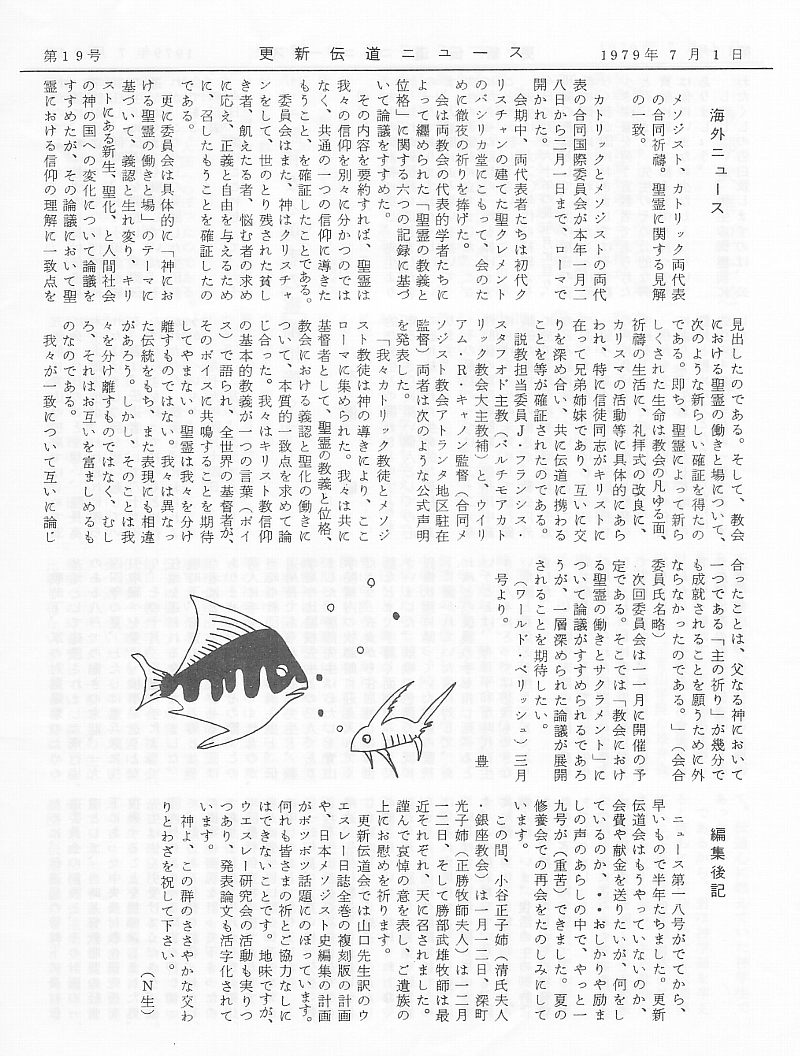 第19号
更新伝道ニュース
1979年7月1日
海外ニュース
メソジスト、カトリック両代表
の合同祈禱。聖霊に関する見解
の一致。
カトリックとメソジストの両代
表の合同国際委員会が本年一月二
八日から二月一日まで、ローマで
開かれた。
会期中、両代表者たちは初代ク
リスチャンの建てた聖クレメント
のバシリカ堂にこもって、会のた
めに徹夜の祈りを捧げた。
会は両教会の代表的学者たちに
よって纏められた「聖霊の教義と
位格」に関する六つの記録に基づ
いて論議をすすめた。
その内容を要約すれば、聖霊は
我々の信仰を別々に分かつのでは
なく、共通の一つの信仰に導きた
もうこと、を確証したことである。
委員会はまた、神はクリスチャ
ンをして、世のとり残された貧し
き者、飢えたる者、悩む者の求め
に応え、正義と自由を与えるため
に、召したもうことを確証したの
である。
更に委員会は具体的に「神にお
ける聖霊の働きと場」のテーマに
基づいて、義認と生れ変り、キリ
ストにある新生、聖化、と人間社会
の神の国への変化について論議を
すすめたが、その論議において聖
霊における信仰の理解に一致点を
見出したのである。そして、教会
における聖霊の働きと場について、
次のような新らしい確証を得たの
である。即ち、聖霊によって新ら
しくされた生命は教会の凡ゆる面、
祈禱の生活に、礼拝式の改良に、
カリスマの活動等に具体的にあら
われ、特に信徒同志がキリストに
在って兄弟姉妹であり、互いに交
りを深め合い、共に伝道に携わる
ことを等が確証されたのである。
説教担当委員J・フランシス・
スタフオド主教（バルチモアカト
リック教会大主教補）と、ウイリ
アム・R・キャノン監督（合同メ
ソジスト教会アトランタ地区駐在
監督）両者は次のような公式声明
を発表した。
「我々カトリック教徒とメソジ
スト教徒は神の導きにより、ここ
ローマに集められた。我々は共に
基督者として、聖霊の教義と位格、
教会における義認と聖化の働きに
ついて、本質的一致点を求めて論
じ合った。我々はキリスト教信仰
の基本的教義が一つの言葉（ボイ
ス）で語られ、全世界の基督者が、
そのボイスに共鳴することを期待
してやまない。聖霊は我々を分け
離すものではない。我々は異なっ
た伝統をもち、また表現にも相違
があろう。しかし、そのことは我
々を分け離すものではなく、むし
ろ、それはお互いを富ましめるも
のなのである。
我々が一致について互いに論じ
合ったことは、父なる神において
一つである「主の祈り」が幾分で
も成就されることを願うために外
ならなかったのである。」（会合
委員氏名略）
次回委員会は一一月に開催の予
定である。そこでは「教会におけ
る聖霊の働きとサクラメント」に
ついて論議がすすめられるであろ
うが、一層深められた論議が展開
されることを期待したい。
（ワールド・ペリッシュ）三月
号より。
豊
編集後記
ニュース第一八号がでてから、
早いもので半年たちました。更新
伝道会はもうやっていないのか、
会費や献金を送りたいが、何をし
ているのか、・・おしかりや励ま
しの声のあらしの中で、やっと一
九号が（重苦）できました。夏の
修養会での再会をたのしみにして
います。
この間、小谷正子姉（清氏夫人
・銀座教会）は一月一二日、深町
光子姉（正勝牧師夫人）は一二月
一二日、そして勝部武雄牧師は最
近それぞれ、天に召されました。
謹んで哀悼の意を表し、ご遺族の
上にお慰めを祈ります。
更新伝道会では山口先生訳のウ
エスレー日誌全巻の複刻版の計画
や、日本メソジスト史編集の計画
がボツボツ話題にのぼっています。
何れも皆さまの祈とご協力なしに
はできないことです。地味ですが、
ウエスレー研究会の活動も実りつ
つあり、発表論文も活字化されて
います。
神よ、この群のささやかな交わ
りとわざを祝して下さい。
（N生）